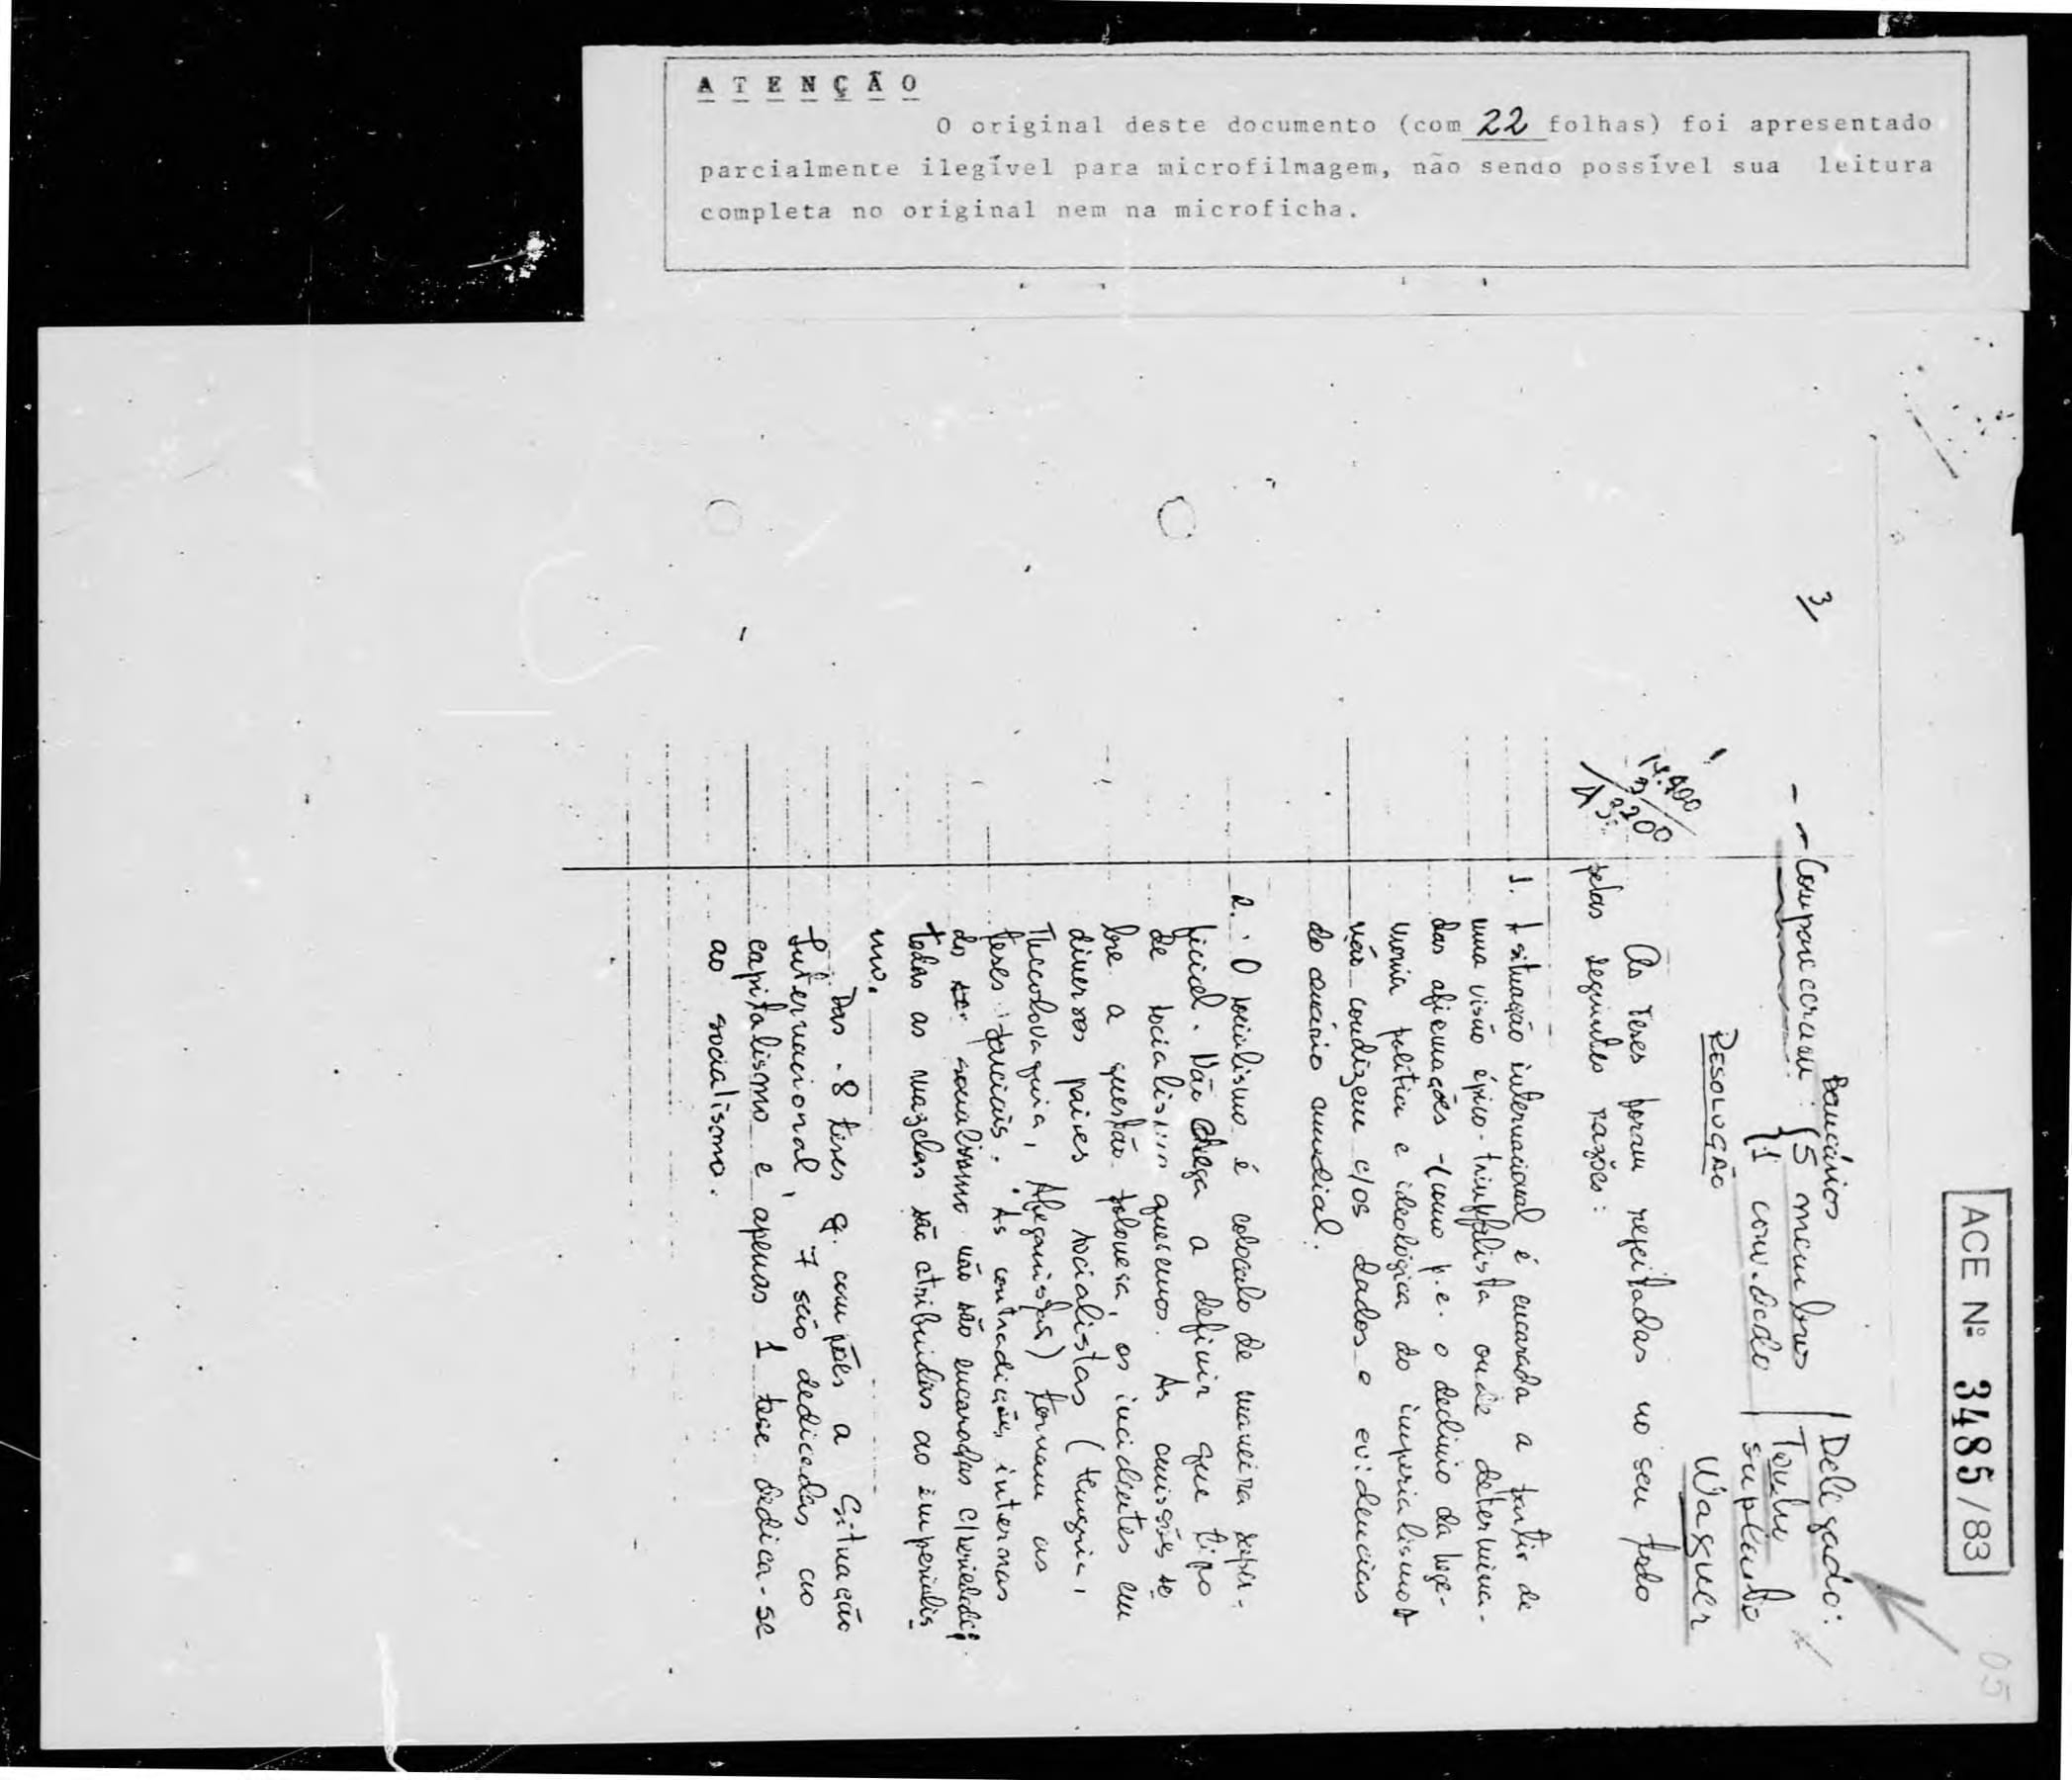 ATENÇÃO
O original deste documento (com 22 folhas) foi apresentado
parcialmente ilegível para microfilmagem, não sendo possível sua leitura
completa no original nem na microficha.
ACE Nº 3485/83
05
3/
Bancários
- - Compareceram: { 5 membros
{ 1 convidado
Delegado:
suplente
Wagner
RESOLUÇÃO
14.400
As teses foram rejeitadas no seu todo
pelas seguintes razões:
1. A situação internacional é encarada a partir de
uma visão épico-triunfalista onde determina-
das afirmações - (como p.e. o declínio da hege-
monia política e ideológica do imperialismo)
não condizem c/os dados e evidencias
do cenário mundial.
2. O socialismo é colocado de maneira super-
ficial. Não chega a definir que tipo
de socialismo queremos. As omissões so
bre a questão polonesa, os incidentes em
diversos paises socialistas (Hungria,
Thecoslovaquia, Afeganistão) tornam as
teses parciais. As contradições internas
do socialismo não são encaradas c/seriedade;
todas as mazelas são atribuidas ao imperialis
mo.
Das 8 teses q. compões a Situação
Internacional, 7 são dedicadas ao
capitalismo e apenas 1 tese dedica-se
ao socialismo.